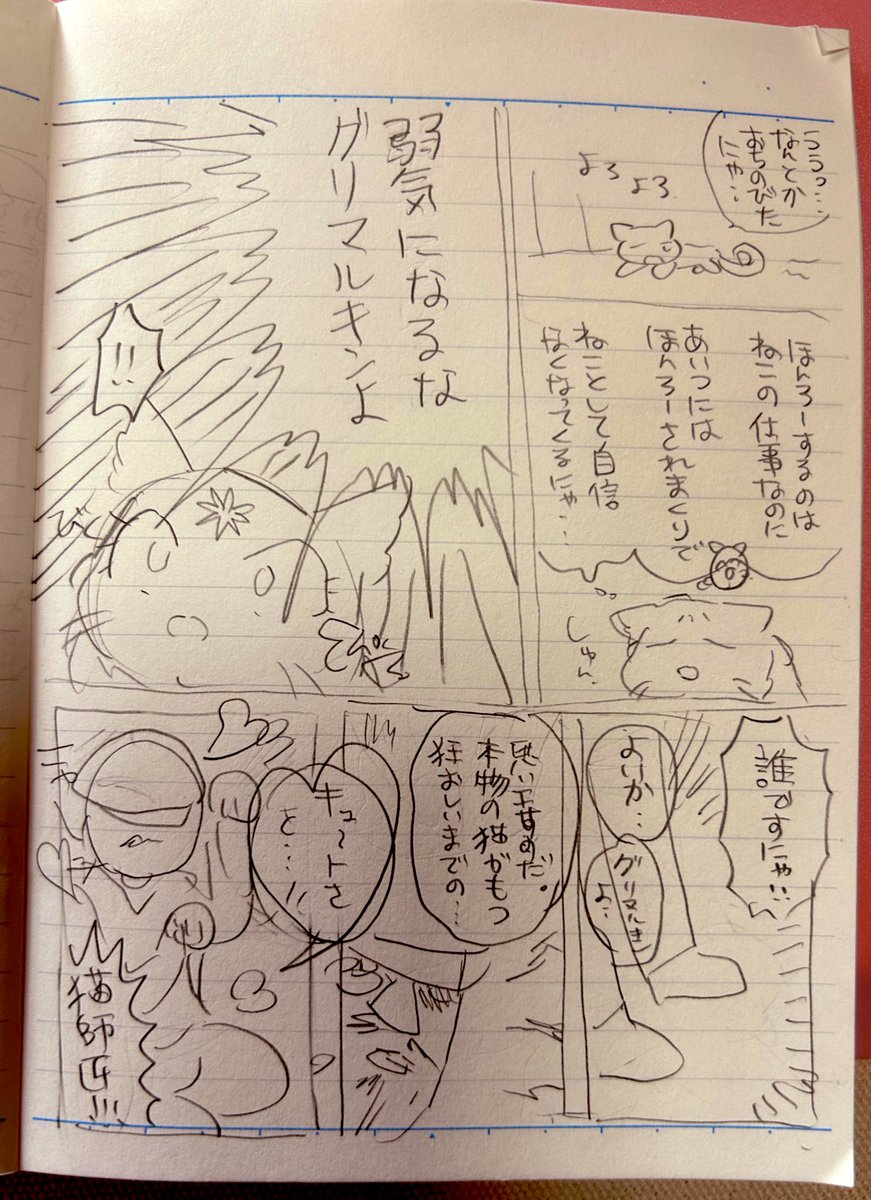 ううっ…
なんとか
おちのびた
にゃ…
よろ
よろ
ほんろーするのは
ねこの仕事なのに
あいつには
ほんろーされまくりで
ねことして自信
なくなってくるにゃ…
しゅん
弱気になるな
グリマルキンよ
!!
びくっ
誰ですにゃ!!
よいか…
グリマルキ
よ…
思い出すのだ。
本物の猫がもつ
狂おしいまでの…
キュ〜トさ
を…!!
猫師匠!!!